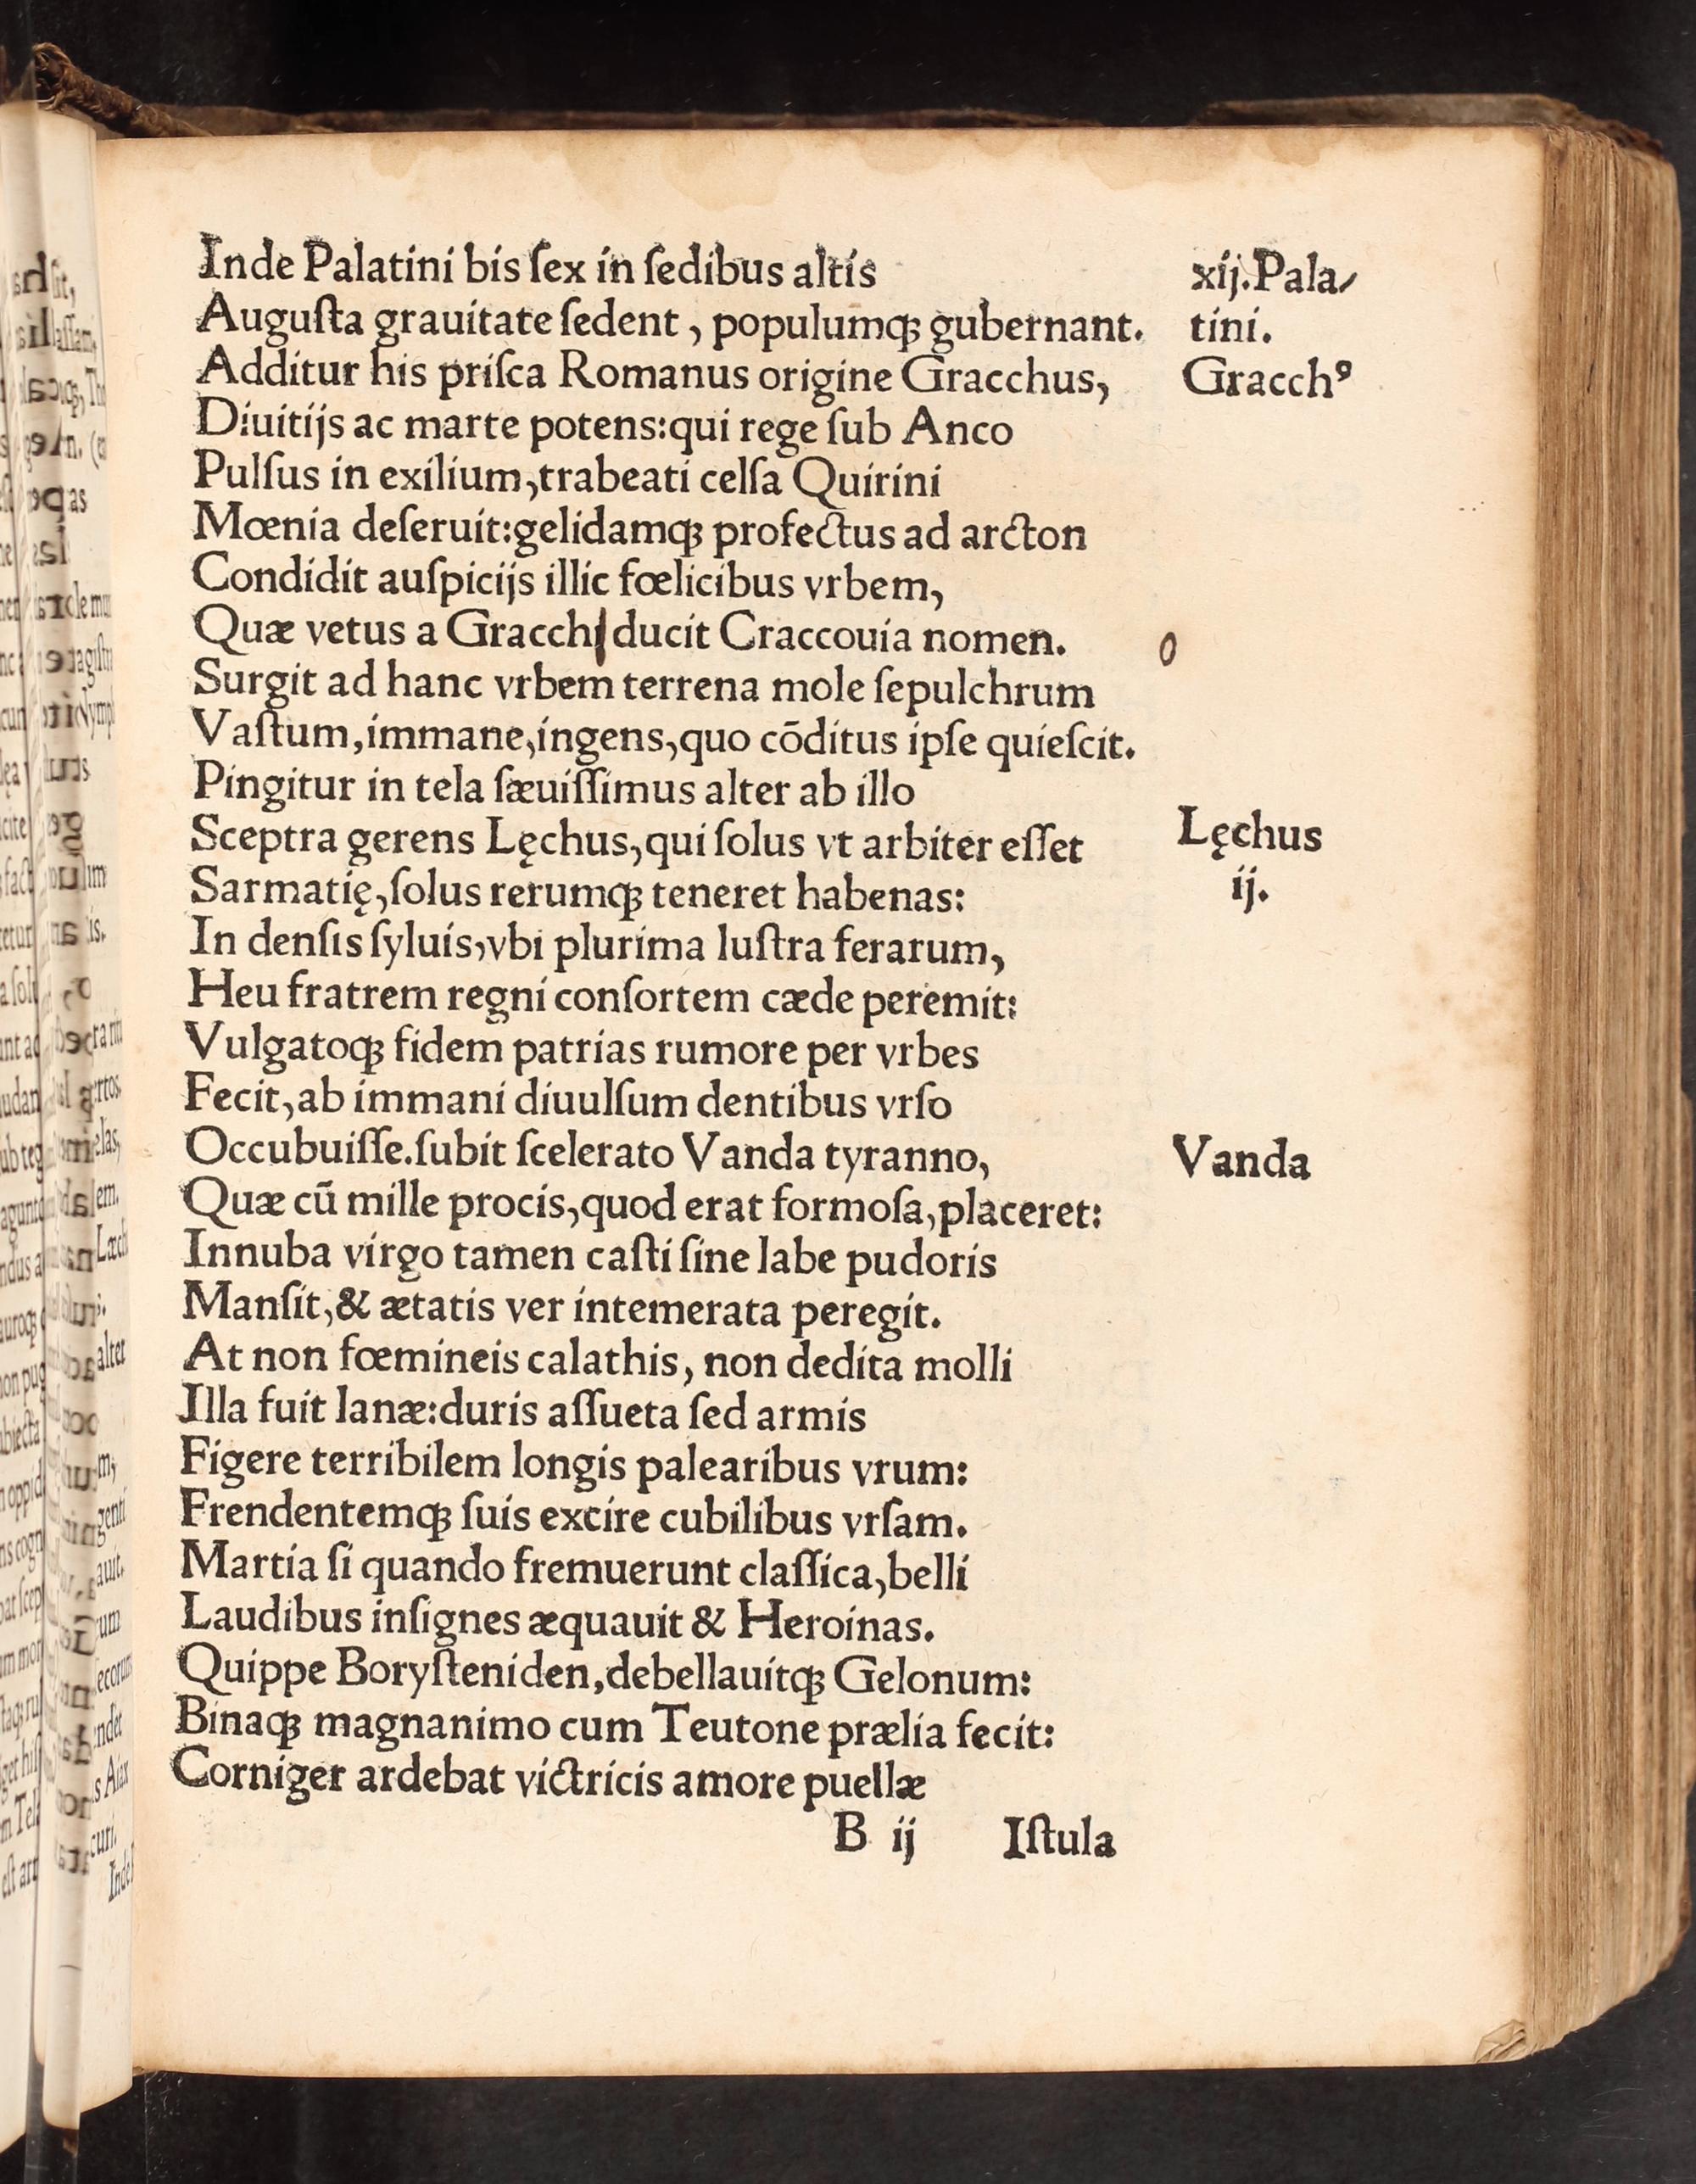 Inde Palatini bis ſex in ſedibus altis
xij. Pala/
Auguſta grauitate ſedent, populumqꝫ gubernant.
tini.
Additur his priſca Romanus origine Gracchus,
Gracchꝰ
Diuitijs ac marte potens: qui rege ſub Anco
Pulſus in exilium, trabeati celſa Quirini
Mœnia deſeruit: gelidamqꝫ profectus ad arcton
Condidit auſpicijs illic fœlicibus vrbem,
Quæ vetus a Gracch| ducit Craccouia nomen.
o
Surgit ad hanc vrbem terrena mole ſepulchrum
Vaſtum, immane, ingens, quo cōditus ipſe quieſcit.
Pingitur in tela ſæuiſſimus alter ab illo
Sceptra gerens Lęchus, qui ſolus vt arbiter eſſet
Lęchus
Sarmatię, ſolus rerumqꝫ teneret habenas:
ij.
In denſis ſyluis, vbi plurima luſtra ferarum,
Heu fratrem regni conſortem cæde peremit:
Vulgatoqꝫ fidem patrias rumore per vrbes
Fecit, ab immani diuulſum dentibus vrſo
Occubuiſſe. ſubit ſcelerato Vanda tyranno,
Vanda
Quæ cū mille procis, quod erat formoſa, placeret:
Innuba virgo tamen caſti ſine labe pudoris
Manſit, & ætatis ver intemerata peregit.
At non fœmineis calathis, non dedita molli
Illa fuit lanæ: duris aſſueta ſed armis
Figere terribilem longis palearibus vrum:
Frendentemqꝫ ſuis excire cubilibus vrſam.
Martia ſi quando fremuerunt claſſica, belli
Laudibus inſignes æquauit & Heroinas.
Quippe Boryſteniden, debellauitqꝫ Gelonum:
Binaqꝫ magnanimo cum Teutone prælia fecit:
Corniger ardebat victricis amore puellæ
B ij Iſtula